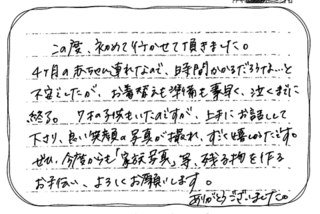 この度、初めて行かせて頂きました。
4ヶ月の赤ちゃん連れなので、時間かかるだろうな…と
不安でしたが、お着替えも準備も素早く、泣くまに
終る。7才の子供もいたのですが、上手にお話しして
下さり、良い笑顔の写真が撮れ、すごく嬉しかったです。
ぜひ、今度からも「家族写真」等、残る物を作る
お手伝い、よろしくお願いします。
ありがとうございました。